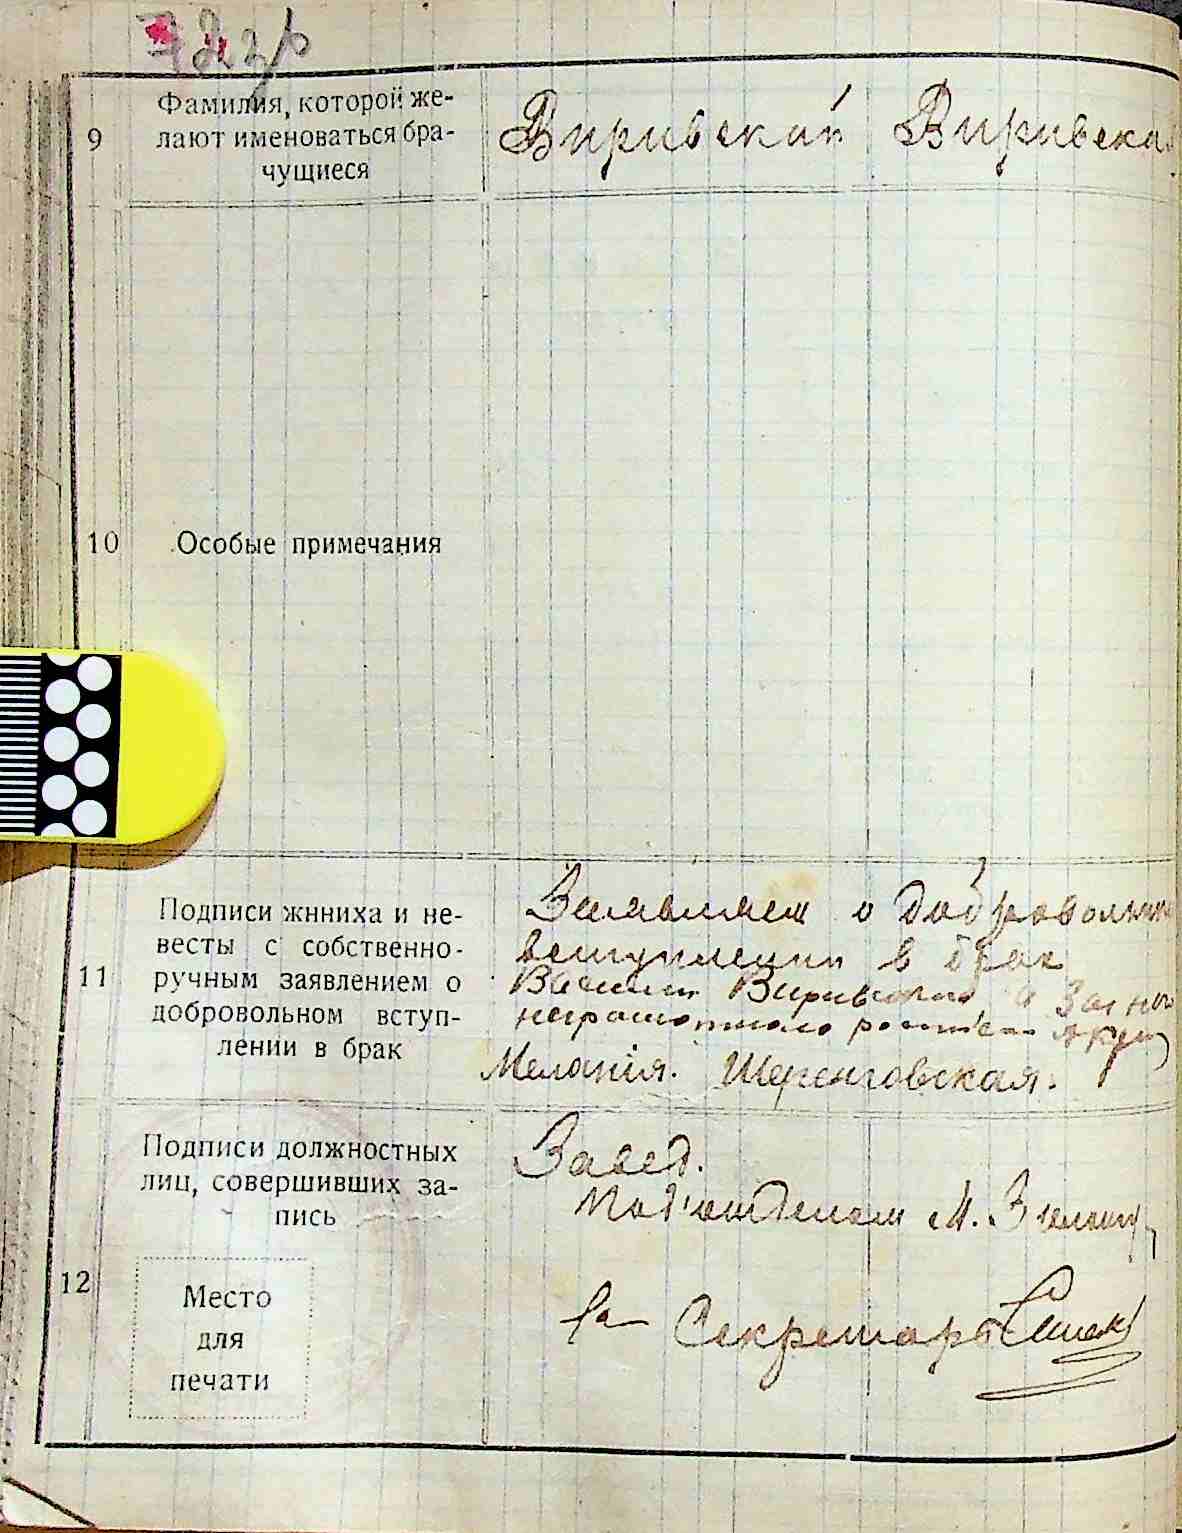 9
Фамилия, которой же-
лают именоваться бра-
чущиеся
Виривский Виривская
10
Особые примечания
11
Подписи жнниха и не-
весты с собственно-
ручным заявлением о
добровольном вступ-
лении в брак
Заявляем о добровольном
вступлении в брак
Василий Виривский
неграмотного
Меланія. Шеренговская.
12
Подписи должностных
лиц, совершивших за-
пись
Место
для
печати
Завед.
Под'отделом М.
Секретарь